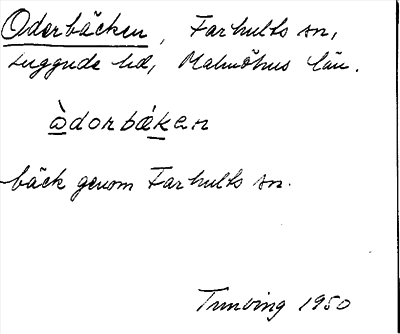 Oderbäcken, Farhults sn,
Luggude hd, Malmöhus län.
òdorbǽken
bäck genom Farhults sn.
1950